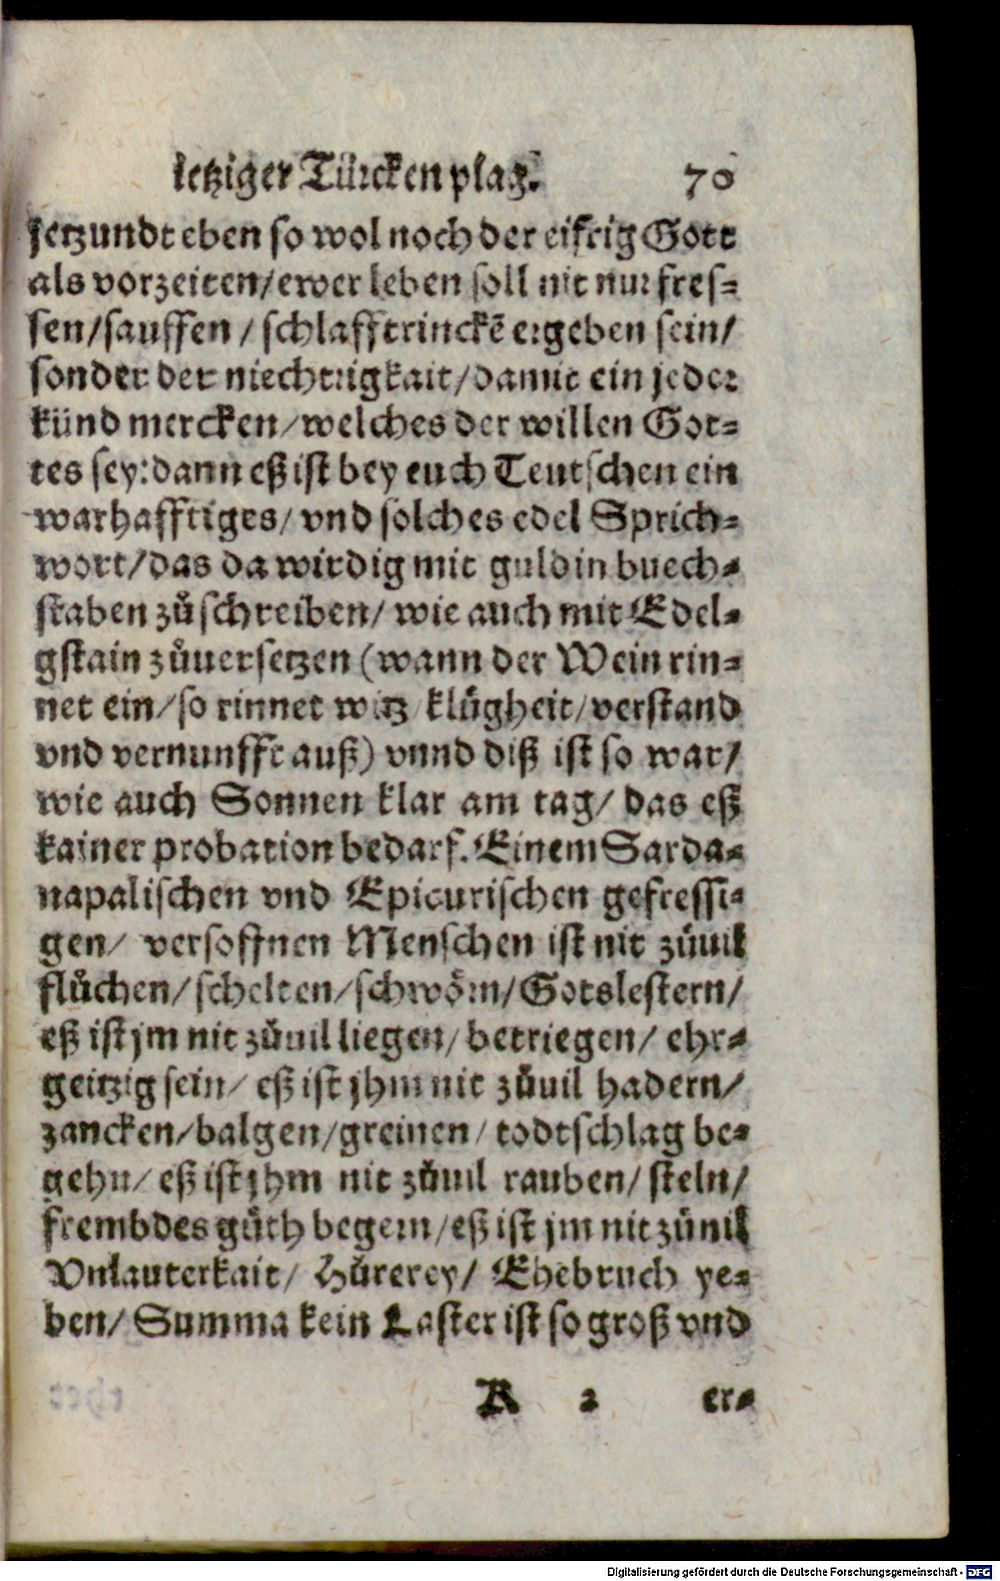 jetziger Türcken plag. 70
jetzundt eben so wol noch der eifrig Gott
als vorzeiten/ewer leben soll nit nur fres=
sen/sauffen/ schlafftrinckē ergeben sein/
sonder der niechtrigkait/damit ein jeder
künd mercken/welches der willen Got=
tes sey: dann eß ist bey euch Teutschen ein
warhafftiges/ vnd solches edel Sprich=
wort/das da wirdig mit guldin buech=
staben zůschreiben/ wie auch mit Edel=
gstain zůuersetzen (wann der Wein rin=
net ein/so rinnet witz/klůgheit/verstand
vnd vernunfft auß) vnnd diß ist so war/
wie auch Sonnen klar am tag/ das eß
kainer probation bedarf. Einem Sarda=
napalischen vnd Epicurischen gefressi=
gen/ versoffnen Menschen ist nit zůuil
flůchen/schelten/schwörn/Gotslestern/
eß ist jm nit zůuil liegen/betriegen/ ehr=
geitzig sein/ eß ist jhm nit zůuil hadern/
zancken/balgen/greinen/todtschlag be=
gehn/ eß ist jhm nit zůuil rauben/ steln/
frembdes gůth begern/eß ist jm nit zůuil
Vnlauterkait/ Hůrerey/ Ehebruch ye=
ben/ Summa kein Laster ist so groß vnd
K 2 er=
Digitalisierung gefördert durch die Deutsche Forschungsgemeinschaft - DFG